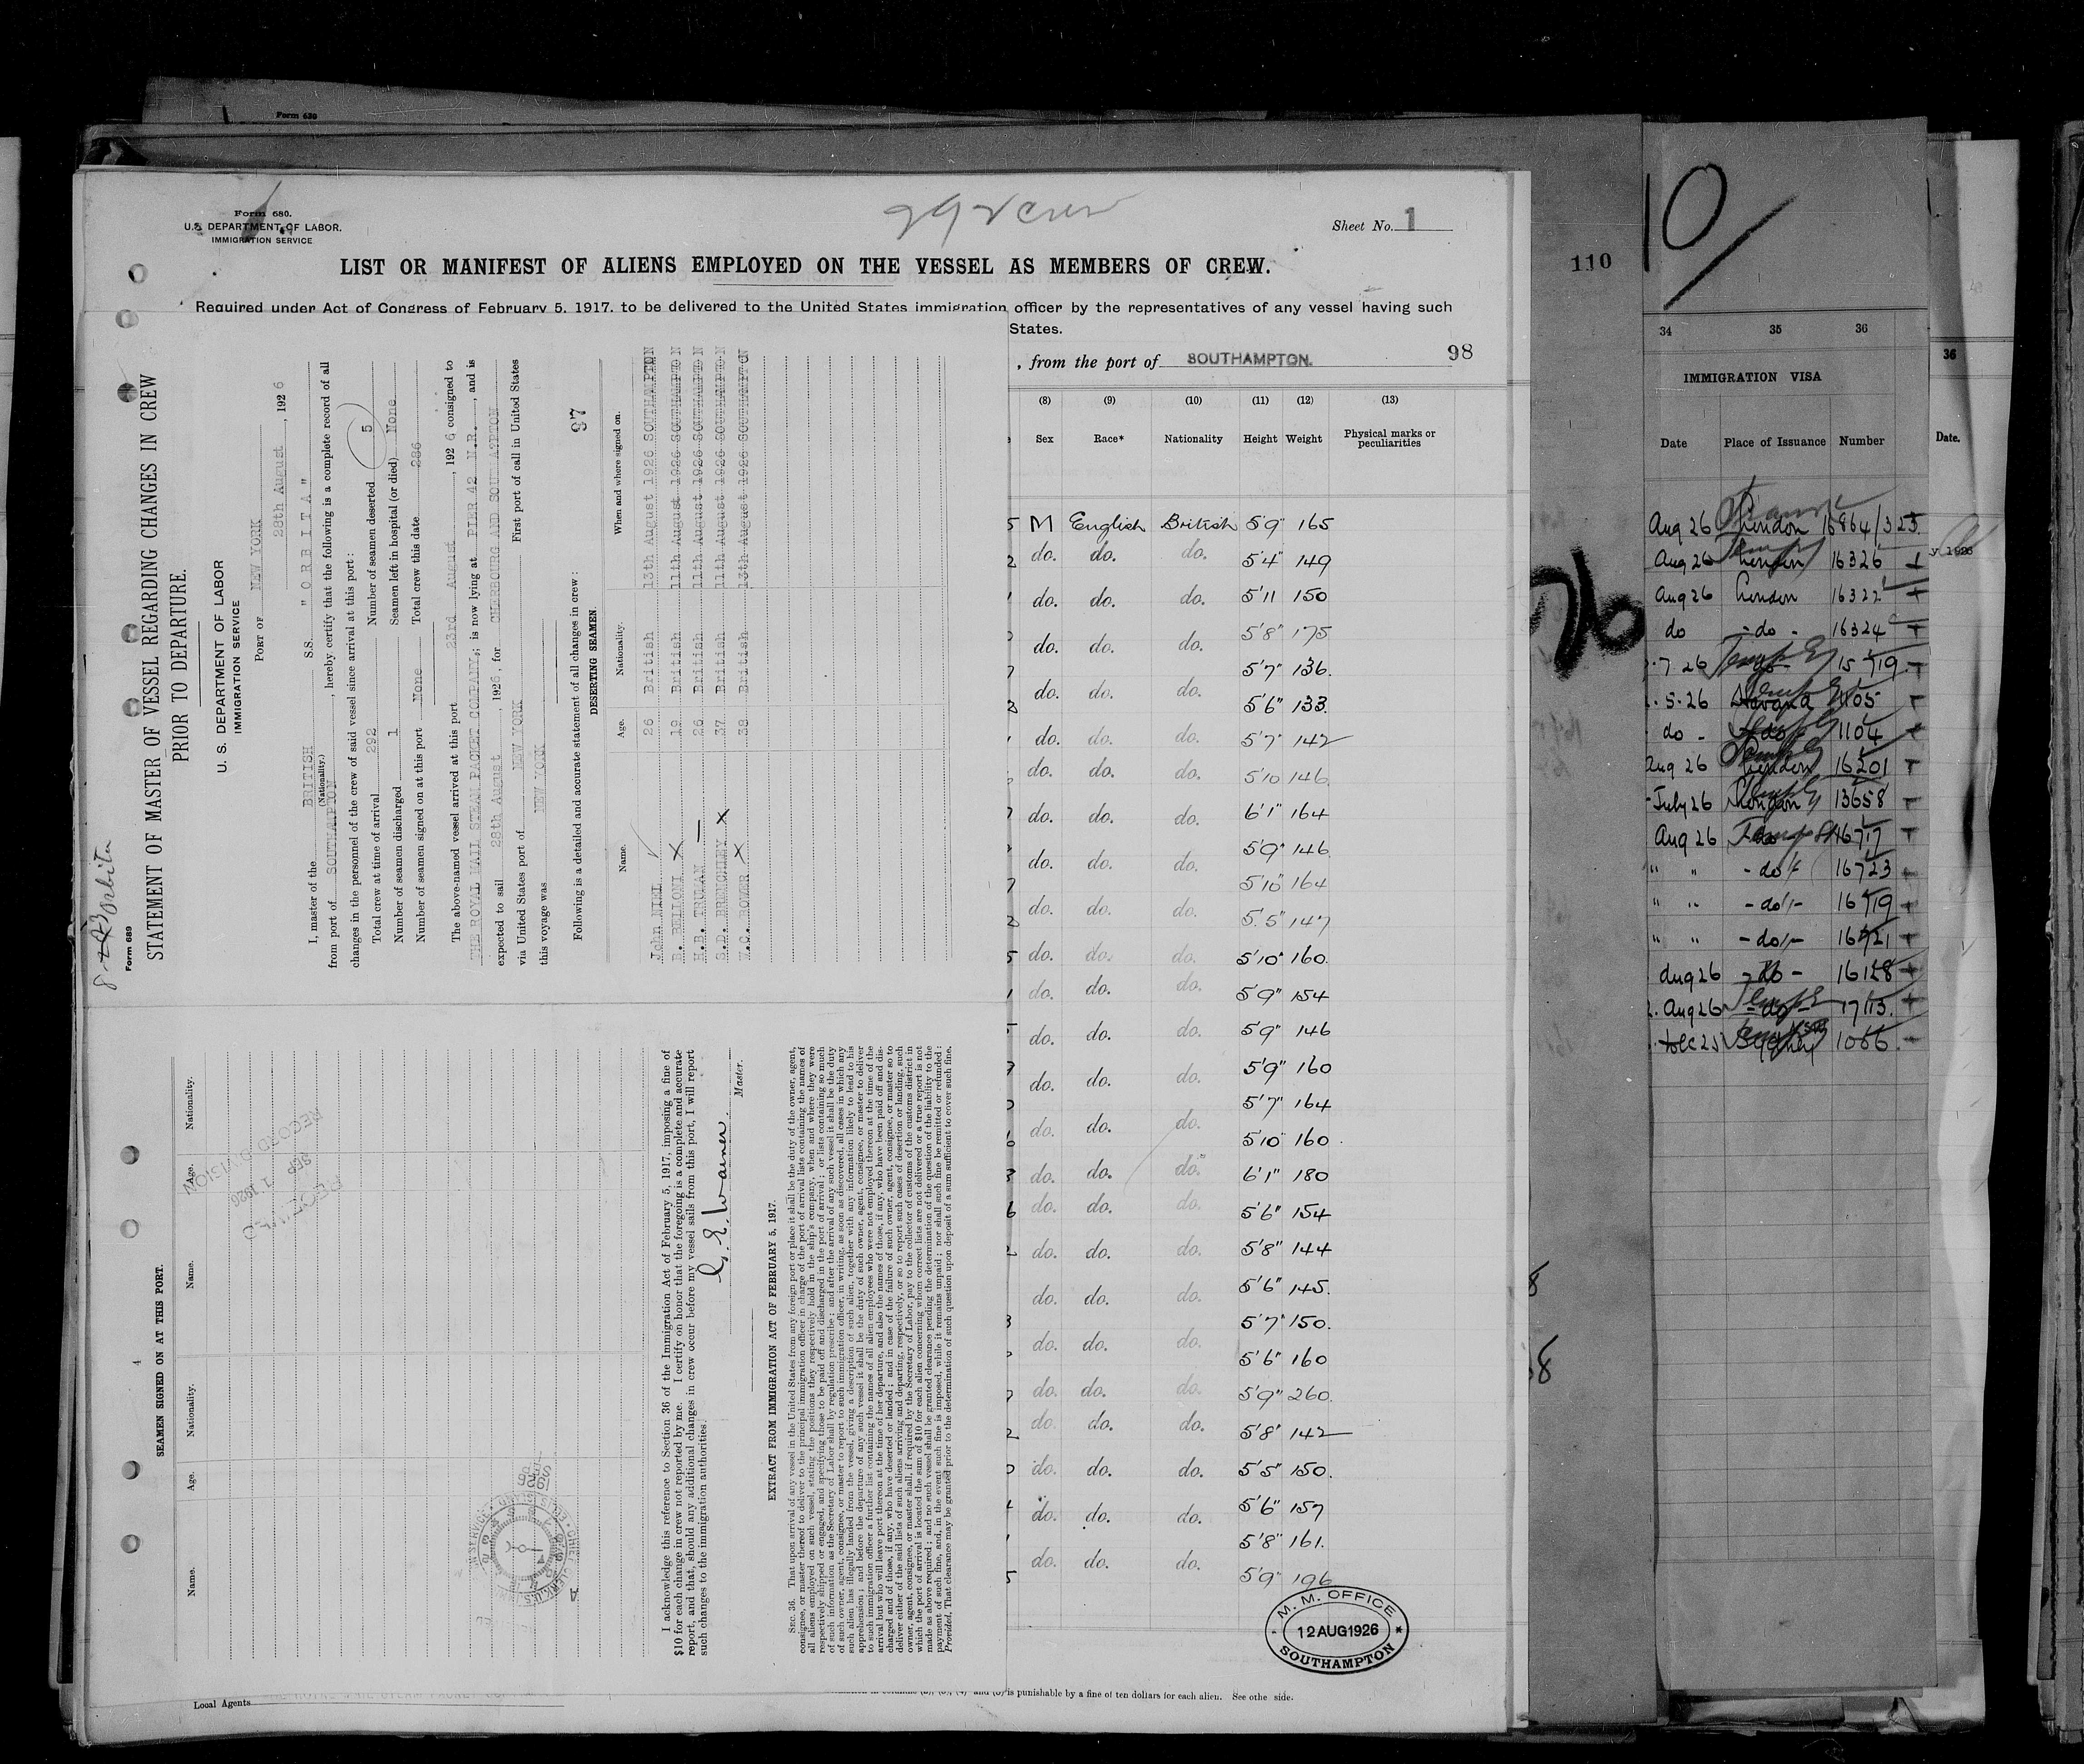 Form 630
292 crew
Form 680.
U.S. DEPARTMENT OF LABOR.
IMMIGRATION SERVICE
Sheet No. 1
LIST OR MANIFEST OF ALIENS EMPLOYED ON THE VESSEL AS MEMBERS OF CREW.
Required under Act of Congress of February 5, 1917, to be delivered to the United States immigration officer by the representatives of any vessel having such
States.
, from the port of SOUTHAMPTON. 98
(8) (9) (10) (11) (12) (13)
Sex Race* Nationality Height Weight Physical marks or peculiarities
M English British 5'9" 165
do. do. do. 5'4" 149
do. do. do. 5'11 150
do. do. do. 5'8" 175
5'7" 136.
do. do. do. 5'6" 133.
do. do. do. 5'7" 142
do. do. do. 5'10 146.
do. do. do. 6'1" 164
do. do. do. 5'9" 146.
5'10" 164
do. do. do. 5'5" 147
do. do. do. 5'10" 160.
do. do. do. 5'9" 154
do. do. do. 5'9" 146
do. do. do. 5'9" 160
5'7" 164
do. do. do. 5'10" 160.
do. do. do. 6'1" 180
do. do. do. 5'6" 154
do. do. do. 5'8" 144
do. do. do. 5'6" 145.
5'7" 150.
do. do. do. 5'6" 160
do. do. do. 5'9" 260.
do. do. do. 5'8" 142
do. do. do. 5'5" 150.
do. do. do. 5'6" 157
5'8" 161.
do. do. do. 5'9" 196
M. M. OFFICE
12 AUG 1926
SOUTHAMPTON
is punishable by a fine of ten dollars for each alien. See othe side.
Local Agents
Orbita
Form 689
STATEMENT OF MASTER OF VESSEL REGARDING CHANGES IN CREW
PRIOR TO DEPARTURE.
U. S. DEPARTMENT OF LABOR
IMMIGRATION SERVICE
PORT OF NEW YORK
28th August, 1926
I, master of the BRITISH S.S. "ORBITA"
(Nationality.)
from port of SOUTHAMPTON, hereby certify that the following is a complete record of all
changes in the personnel of the crew of said vessel since arrival at this port:
Total crew at time of arrival 292 Number of seamen deserted 5
Number of seamen discharged 1 Seamen left in hospital (or died) None
Number of seamen signed on at this port None Total crew this date 286
The above-named vessel arrived at this port 23rd August, 1926 consigned to
THE ROYAL MAIL STEAM PACKET COMPANY; is now lying at PIER 42 N.R., and is
expected to sail 28th August, 1926, for CHERBOURG AND SOUTHAMPTON
via United States port of NEW YORK First port of call in United States
this voyage was NEW YORK
Following is a detailed and accurate statement of all changes in crew: 97
DESERTING SEAMEN.
Name. Age. Nationality. When and where signed on.
John NIEL 26 British 13th August 1926 SOUTHAMPTON
B. BELLONI X 19 British 11th August 1926 SOUTHAMPTON
H.B. TRUMAN — 26 British 11th August 1926 SOUTHAMPTON
S.D. BRENCHLEY X 37 British 11th August 1926 SOUTHAMPTON
BOWER X 38 British 13th August 1926 SOUTHAMPTON
4
SEAMEN SIGNED ON AT THIS PORT.
Name. Age. Nationality. Name. Age. Nationality.
RECEIVED
SEP 1 1926
RECORD DIVISION
I acknowledge this reference to Section 36 of the Immigration Act of February 5, 1917, imposing a fine of
$10 for each change in crew not reported by me. I certify on honor that the foregoing is a complete and accurate
report, and that, should any additional changes in crew occur before my vessel sails from this port, I will report
such changes to the immigration authorities.
G. E. Warner.
Master.
EXTRACT FROM IMMIGRATION ACT OF FEBRUARY 5, 1917.
SEC. 36. That upon arrival of any vessel in the United States from any foreign port or place it shall be the duty of the owner, agent,
consignee, or master thereof to deliver to the principal immigration officer in charge of the port of arrival lists containing the names of
all aliens employed on such vessel, stating the positions they respectively hold in the ship's company, when and where they were
respectively shipped or engaged, and specifying those to be paid off and discharged in the port of arrival; or lists containing so much
of such information as the Secretary of Labor shall by regulation prescribe; and after the arrival of any such vessel it shall be the duty
of such owner, agent, consignee, or master to report to such immigration officer, in writing, as soon as discovered, all cases in which any
such alien has illegally landed from the vessel, giving a description of such alien, together with any information likely to lead to his
apprehension; and before the departure of any such vessel it shall be the duty of such owner, agent, consignee, or master to deliver
to such immigration officer a further list containing the names of all alien employees who were not employed thereon at the time of the
arrival but who will leave port thereon at the time of her departure, and also the names of those, if any, who have been paid off and dis-
charged and of those, if any, who have deserted or landed; and in case of the failure of such owner, agent, consignee, or master so to
deliver either of the said lists of such aliens arriving and departing, respectively, or so to report such cases of desertion or landing, such
owner, agent, consignee, or master shall, if required by the Secretary of Labor, pay to the collector of customs of the customs district in
which the port of arrival is located the sum of $10 for each alien concerning whom correct lists are not delivered or a true report is not
made as above required; and no such vessel shall be granted clearance pending the determination of the question of the liability to the
payment of such fine, and, in the event such fine is imposed, while it remains unpaid; nor shall such fine be remitted or refunded:
Provided, That clearance may be granted prior to the determination of such question upon deposit of a sum sufficient to cover such fine.
110
10/
34 35 36
IMMIGRATION VISA
Date Place of Issuance Number
Aug 26 London 16864/325
Aug 26 London 16326
Aug 26 London 16322
do - do - 16324
7 26 15719
5.26 Havana 1105
do - do 1104
Aug 26 London 16201
July 26 London 13658
Aug 26 do 16717
" " - do - 16723
" " - do - 16719
" " - do - 16721
Aug 26 - do - 16128
Aug 26 - do - 17113.
Dec 25 Sydney 1066.
36
Date.